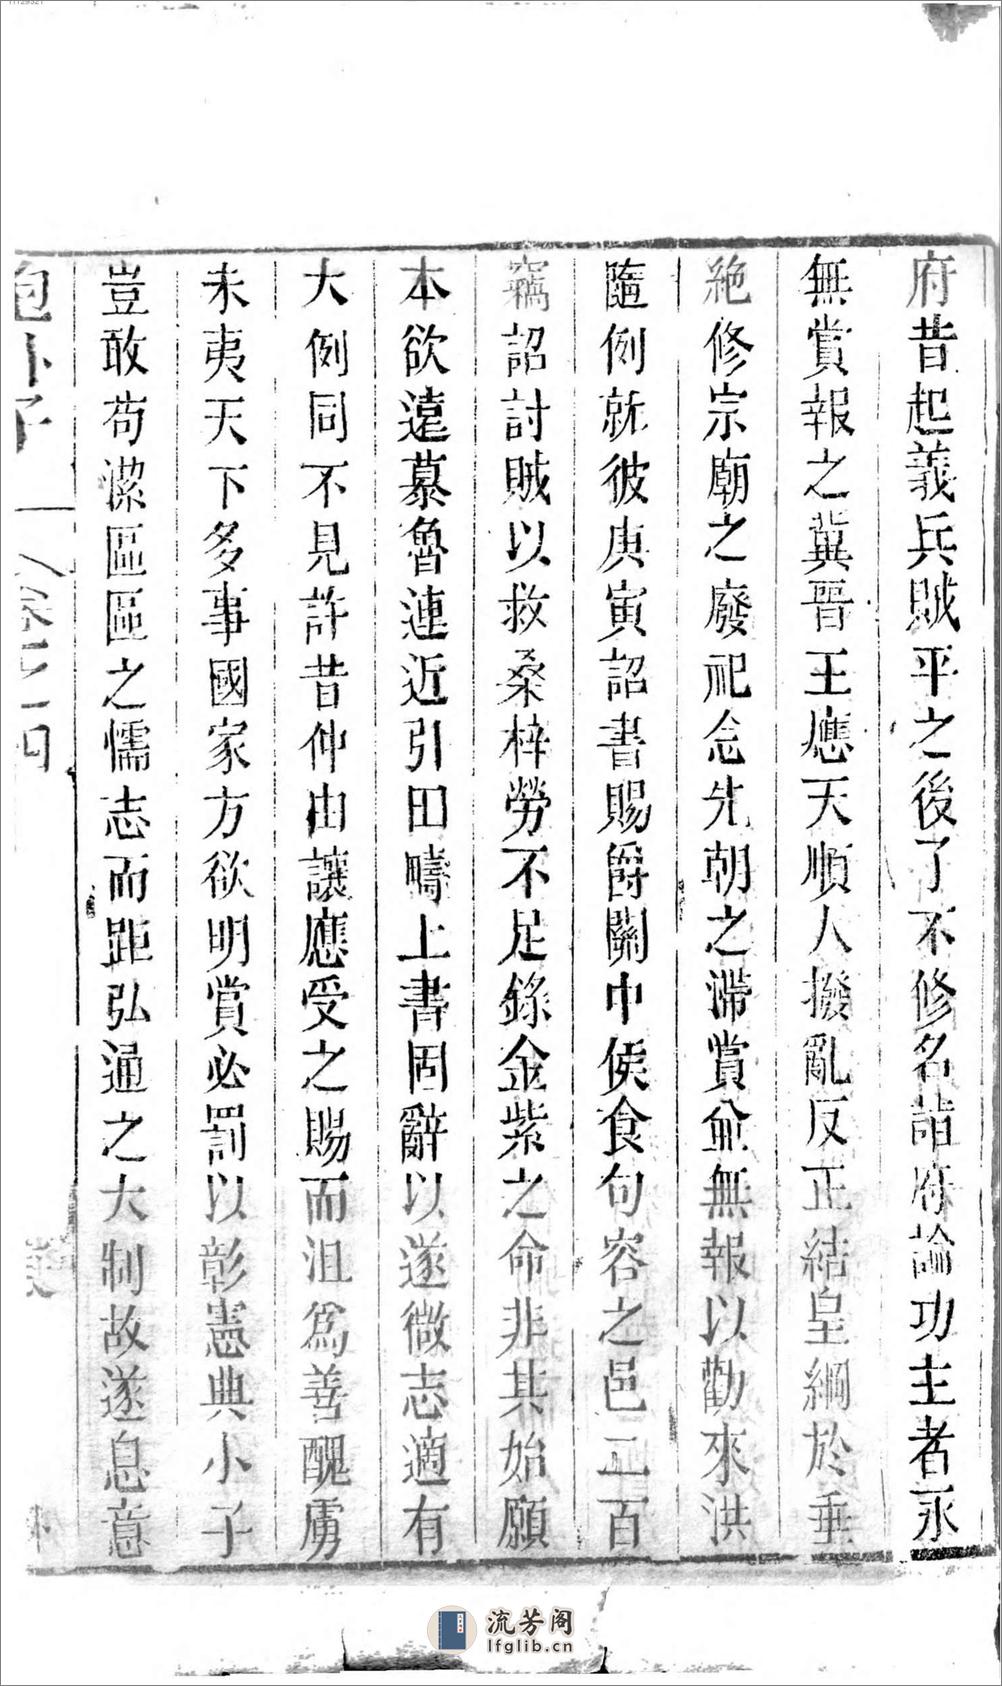 府昔起義兵賊平之後了不修名詣府論功主者永
無賞報之冀晉王應天順人撥亂反正結皇綱於垂
絶修宗廟之廢祀念先朝之滯賞並無報以勸來洪
隨例就彼庚寅詔書賜爵關中侯食句容之邑二百
竊詔討賊以救桑梓勞不足錄金紫之命非其始願
本欲遠慕魯連近引田疇上書固辭以遂微志適有
大例同不見許昔仲由讓應受之賜而沮爲善醜虜
未夷天下多事國家方欲明賞必罰以彰憲典小子
豈敢苟潔區區之懦志而距弘通之大制故遂息意
抱朴子 卷之四
流芳阁
lfglib.cn